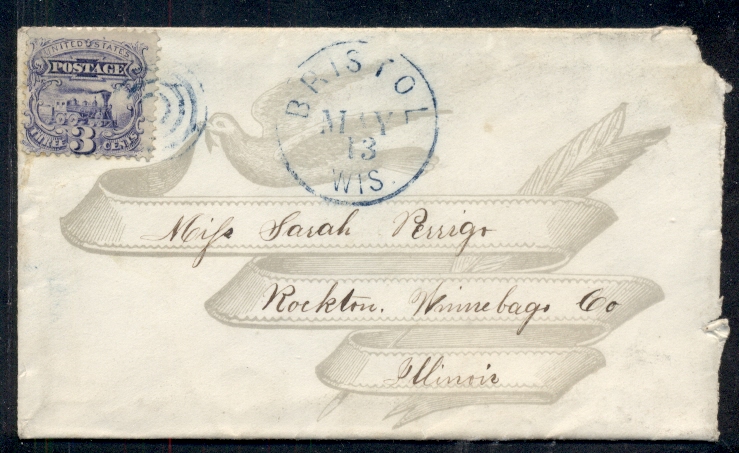 UNITED STATES
POSTAGE
THREE 3 CENTS
BRISTOL
MAY
13
WIS.
Miſs Sarah Perrigo
Rockton. Winnebago Co
Illinois